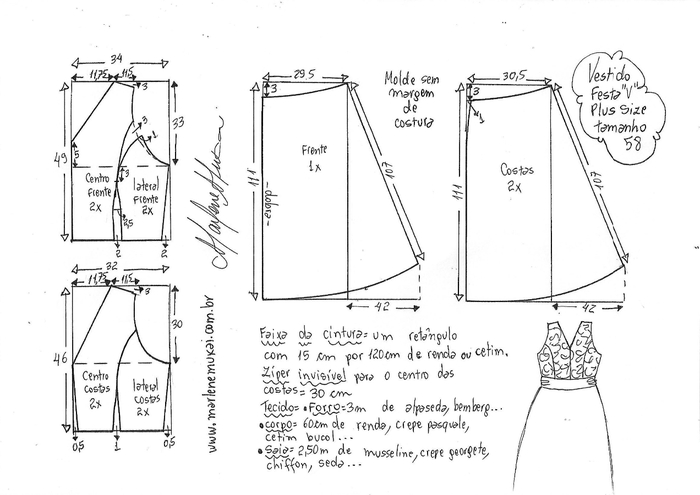 34
11,75
11,5
3
3
1
33
49
5
3
Centro
Frente
2x
lateral
Frente
2x
2,5
2
2
32
11,75
11,5
3
30
46
Centro
costas
2x
lateral
Costas
2x
0,5
1
0,5
www.marlenemukai.com.br
29,5
3
Frente
1x
111
107
42
Molde sem
margem
de
costura
30,5
3
1
Costas
2x
111
107
42
Vestido
Festa "V"
Plus Size
tamanho
58
Faixa da cintura = um retângulo
com 15 cm por 120cm de renda ou cetim.
Zíper invisível para o centro das
costas = 30 cm
Tecido = • Forro = 3m de alpaseda, bemberg...
• corpo = 60cm de renda, crepe pasquale,
cetim bucol...
• Saia = 2,50m de musseline, crepe georgete,
chiffon, seda...